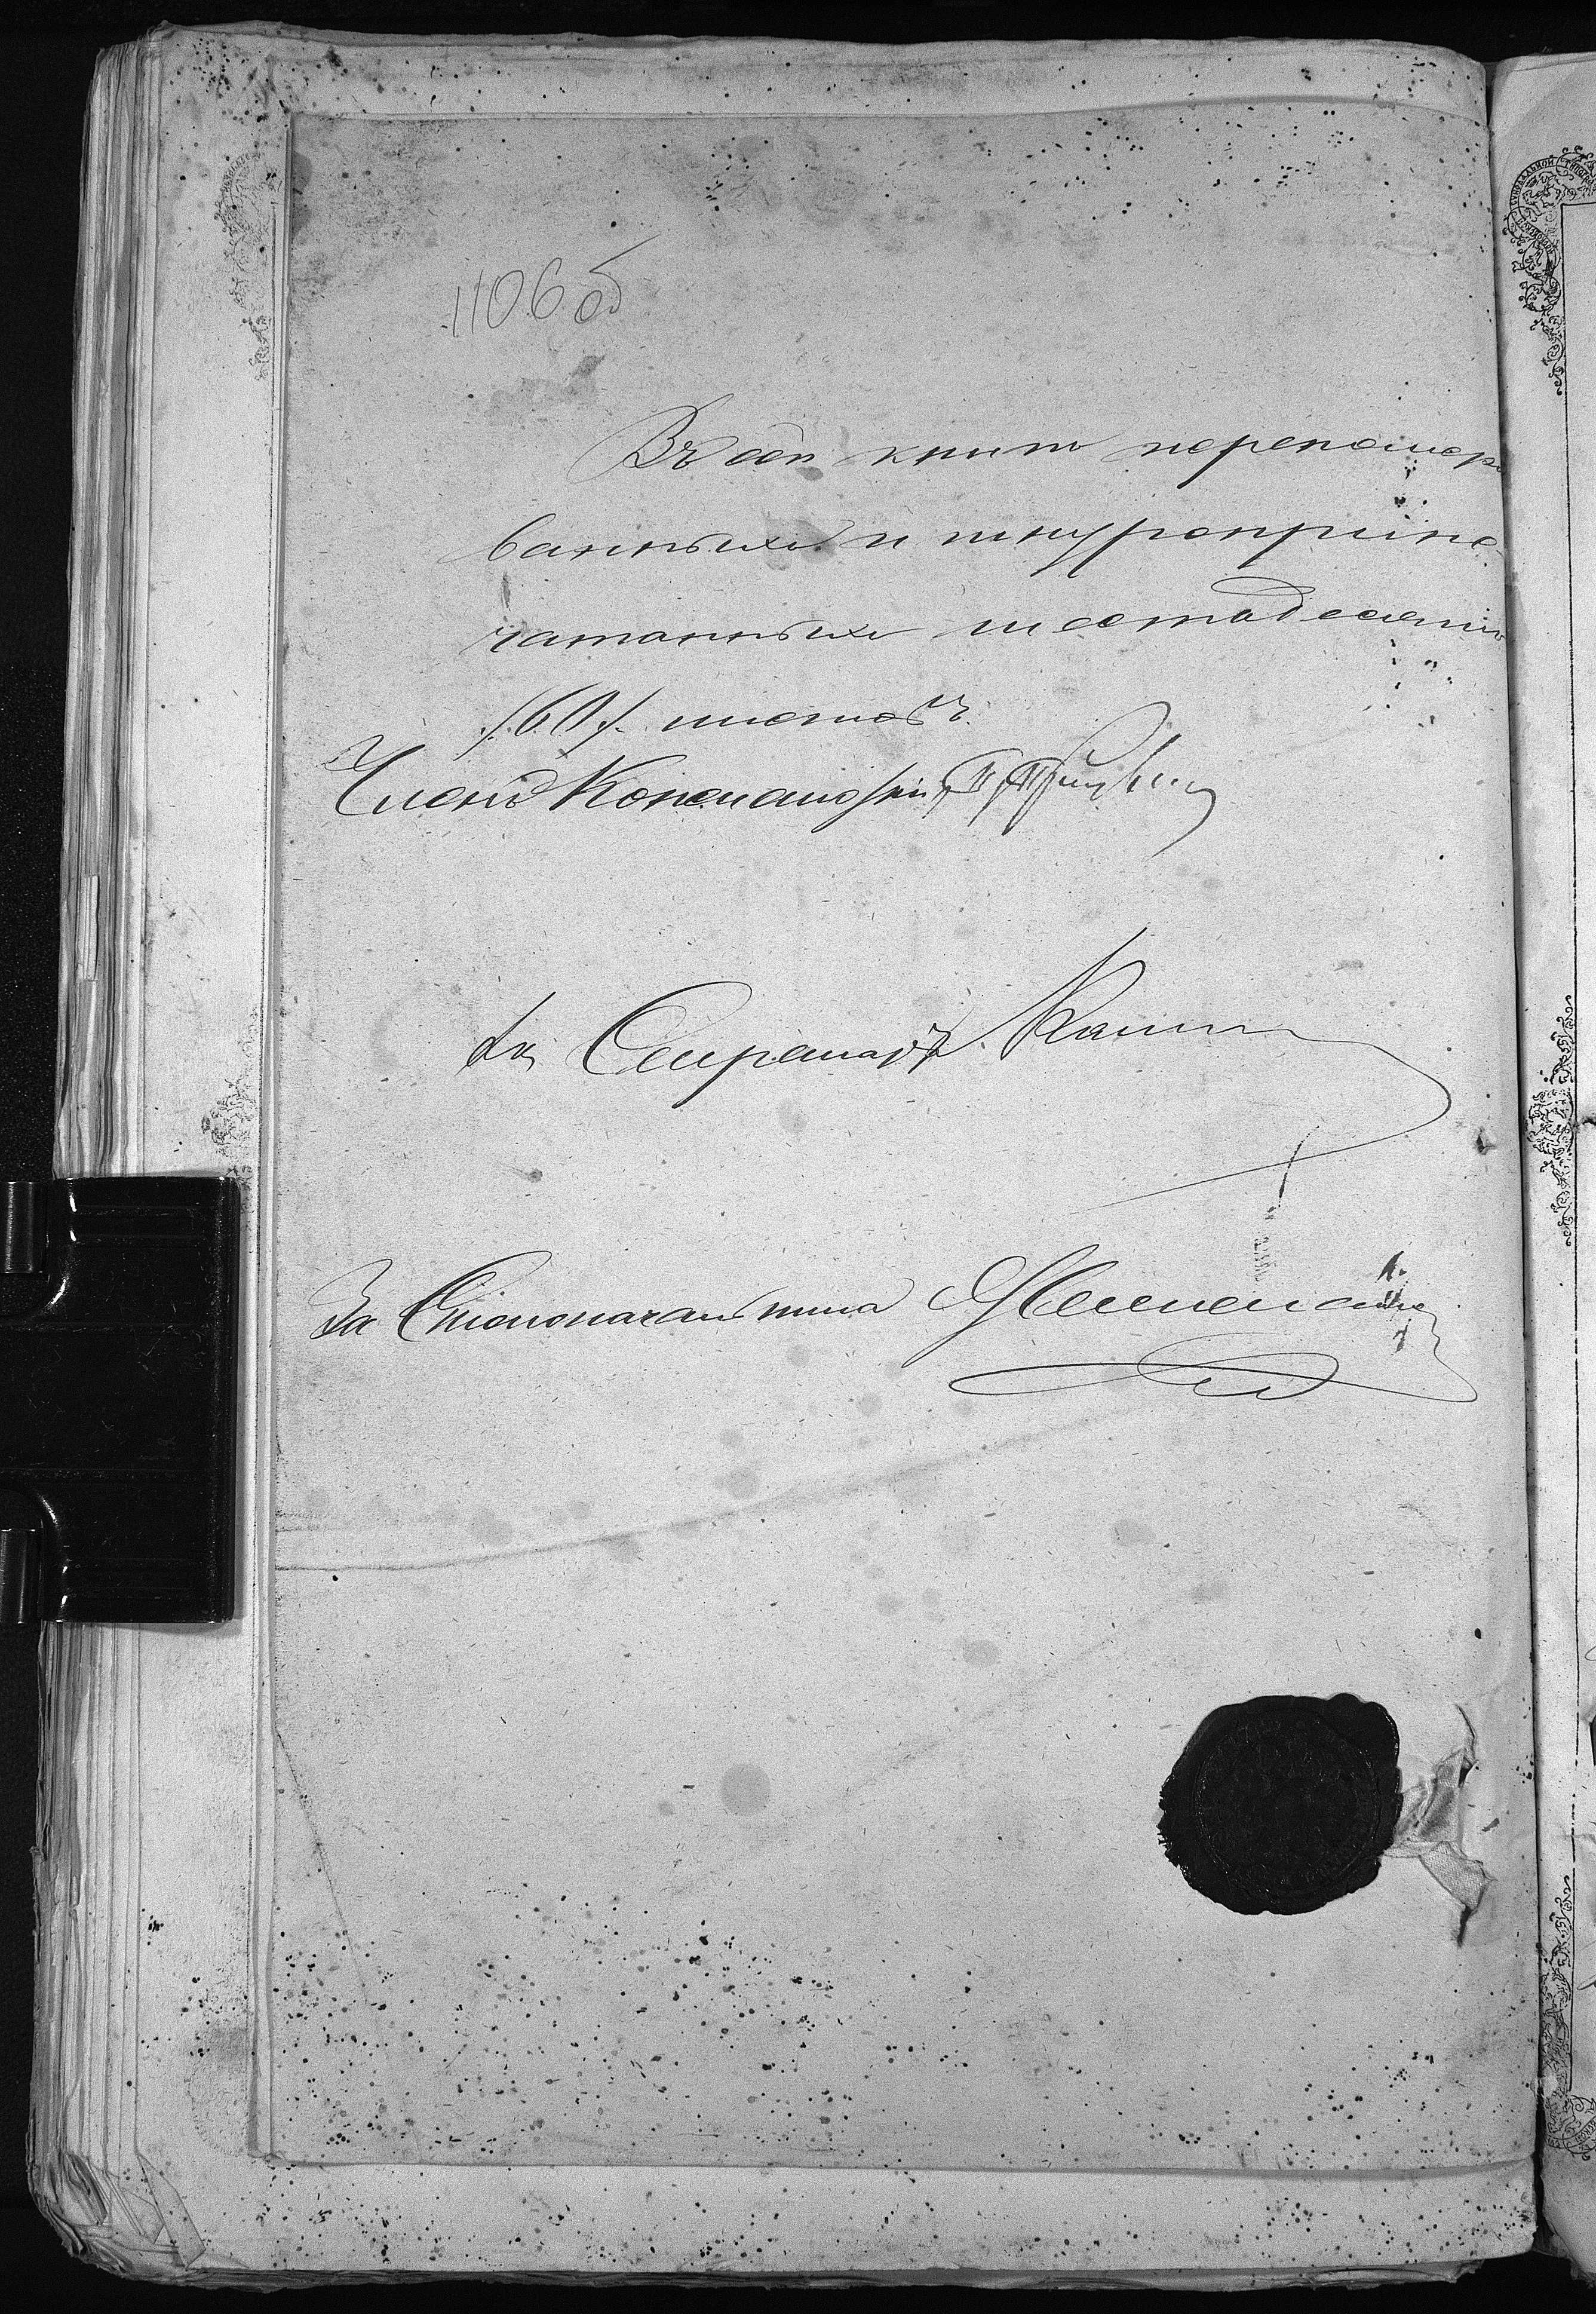 1106 об
Въ сей книге перенумеро
ванныхъ и шнуроприпе-
чатанныхъ шестьдесятъ
/:60:/ листовъ.
Членъ Консисторіи,
За Секретаря
За Столоначальника